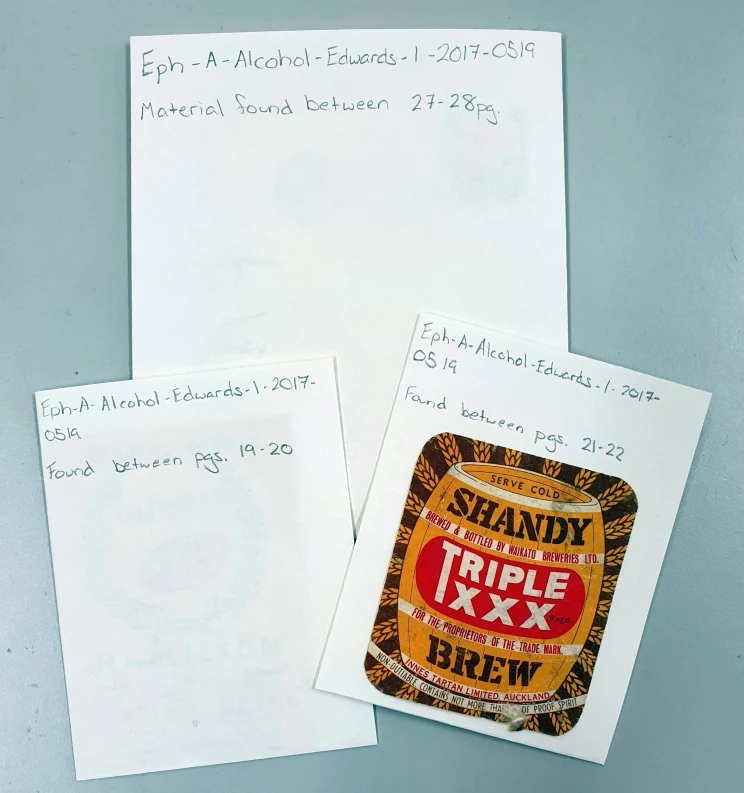 Eph-A-Alcohol-Edwards-1-2017-0519
Material found between 27-28pg.
Eph-A-Alcohol-Edwards-1-2017-
0519
Found between pgs. 19-20
Eph-A-Alcohol-Edwards-1-2017-
0519
Found between pgs. 21-22
SERVE COLD
SHANDY
BREWED & BOTTLED BY WAIKATO BREWERIES LTD.
TRIPLE
XXX Regd.
FOR THE PROPRIETORS OF THE TRADE MARK,
BREW
INNES TARTAN LIMITED, AUCKLAND
NON-DUTIABLE CONTAINS NOT MORE THAN OF PROOF SPIRIT